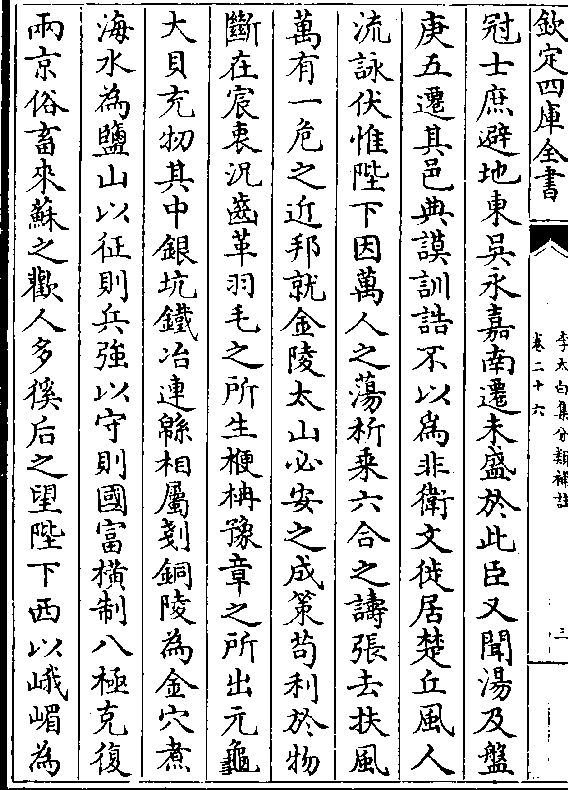 欽定四庫全書
李太白集分類補註
卷二十六
三
冠士庶避地東吳永嘉南遷未盛於此臣又聞湯及盤
庚五遷其邑典謨訓誥不以為非衛文徙居楚丘風人
流詠伏惟陛下因萬人之蕩析乗六合之譸張去扶風
萬有一危之近邦就金陵太山必安之成策苟利於物
斷在宸衷況齒革羽毛之所生楩柟豫章之所出元龜
大貝充牣其中銀坑鐵冶連緜相屬剗銅陵為金穴煮
海水為鹽山以征則兵強以守則國富橫制八極克復
兩京俗畜來蘇之歡人多徯后之望陛下西以峨嵋為